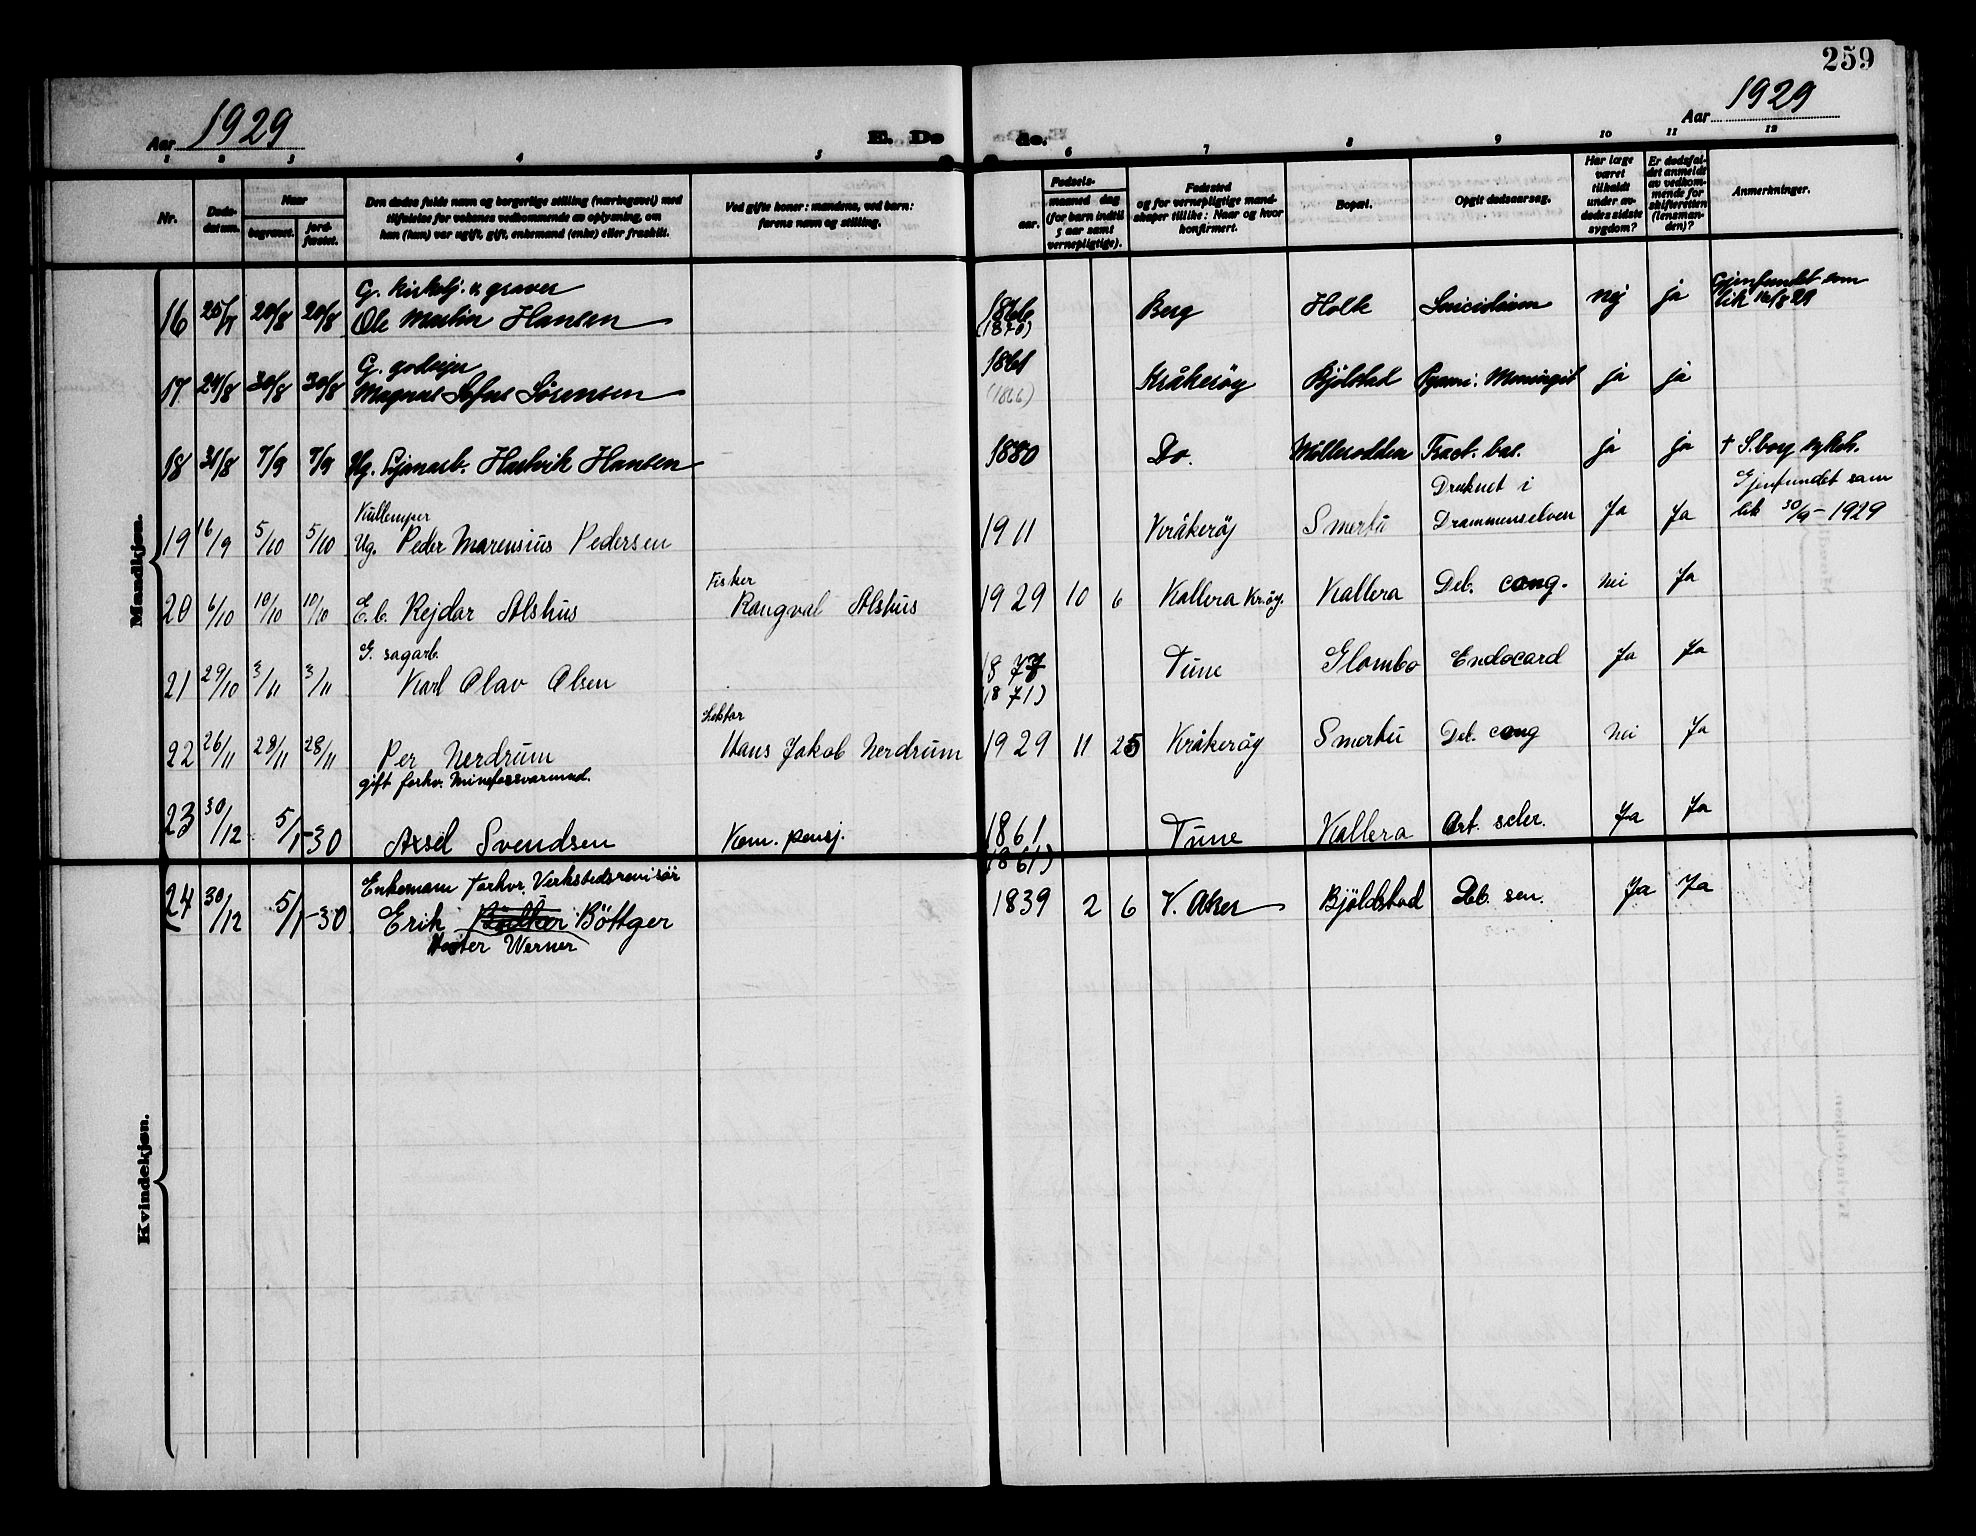 259
Aar 1929
E. Dø
de.
Aar 1929
1 2 3 4 5 6 7 8 9 10 11 12
Nr.
Døds-
datum.
Naar
begravet.
jord-
fæstet.
Den dødes fulde navn og borgerlige stilling (næringsvei) med
tilføielse for voksnes vedkommende av oplysning, om
han (hun) var ugift, gift, enkemand (enke) eller fraskilt.
Ved gifte koner: mandens, ved barn:
farens navn og stilling.
Fødsels-
aar.
maaned dag
(for barn indtil
5 aar samt
vernepligtige).
Fødested
og for vernepligtige mand-
skaper tillike: Naar og hvor
konfirmert.
Bopæl.
Opgit dødsaarsag.
Har læge
været
tilkaldt
under av-
dødes sidste
sygdom?
Er dødsfal-
det anmeldt
av vedkom-
mende for
skifteretten
(lensman-
den)?
Anmerkninger.
Mandkjøn.
G. kirketj. & graver
16 25/7 20/8 20/8 Ole Martin Hansen 1866 Berg Holk Suicidium nej ja Gjenfundet som
(1870) lik 16/8 29
G. godseier
17 24/8 30/8 30/8 Magnus Sofus Sørensen 1861 Kråkerøy Bjølstad Pyæmi. Meningit ja ja
(1866)
18 31/8 7/9 7/9 Ug. Hartvik Hansen 1880 Do. Møllerodden Fract. bas. ja ja + S.borg sykeh.
Kullemper Druknet i Gjenfundet som
19 16/9 5/10 5/10 Ug. Peder Marensius Pedersen 1911 Kråkerøj Smertu Drammenselven Ja Ja lik 30/9-1929
Fisker
20 6/10 10/10 10/10 E. b. Rejdar Alshus Rangval Alshus 1929 10 6 Kallera Kr.øy. Kallera Deb. cong. Nei Ja
G. sagarb.
21 29/10 3/11 3/11 Karl Olav Olsen 1877 Tune Glombo Endocard Ja Ja
(1871)
Lektor
22 26/11 28/11 28/11 Per Nerdrum Hans Jakob Nerdrum 1929 11 25 Kråkerøy Smertu Deb. cong Nei Ja
gift forhv. Mineforsvarmnd.
23 30/12 5/1-30 Axsel Svendsen Kom. pensj. 1861 Tune Kallera Art. scler. Ja Ja
(1861)
Enkemann forhv. Verkstedsrevisør
24 30/12 5/1-30 Erik Bötker Böttger 1839 2 6 V. Aker Bjöldstad Deb. sen. Ja Ja
Werner
Kvindekjøn.